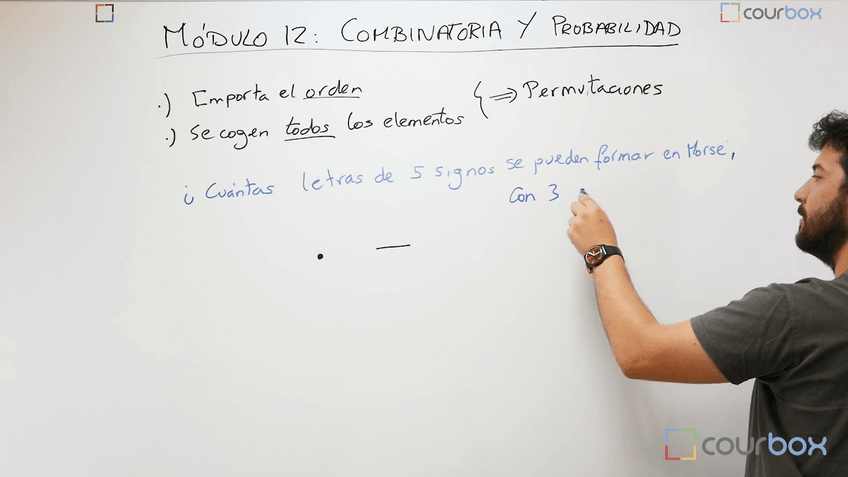 MÓDULO 12: COMBINATORIA Y PROBABILIDAD
courbox
.) Emporta el orden
.) Se cogen todos los elementos
{ => Permutaciones
¿ Cuántas letras de 5 signos se pueden formar en Morse,
Con 3
. —
courbox